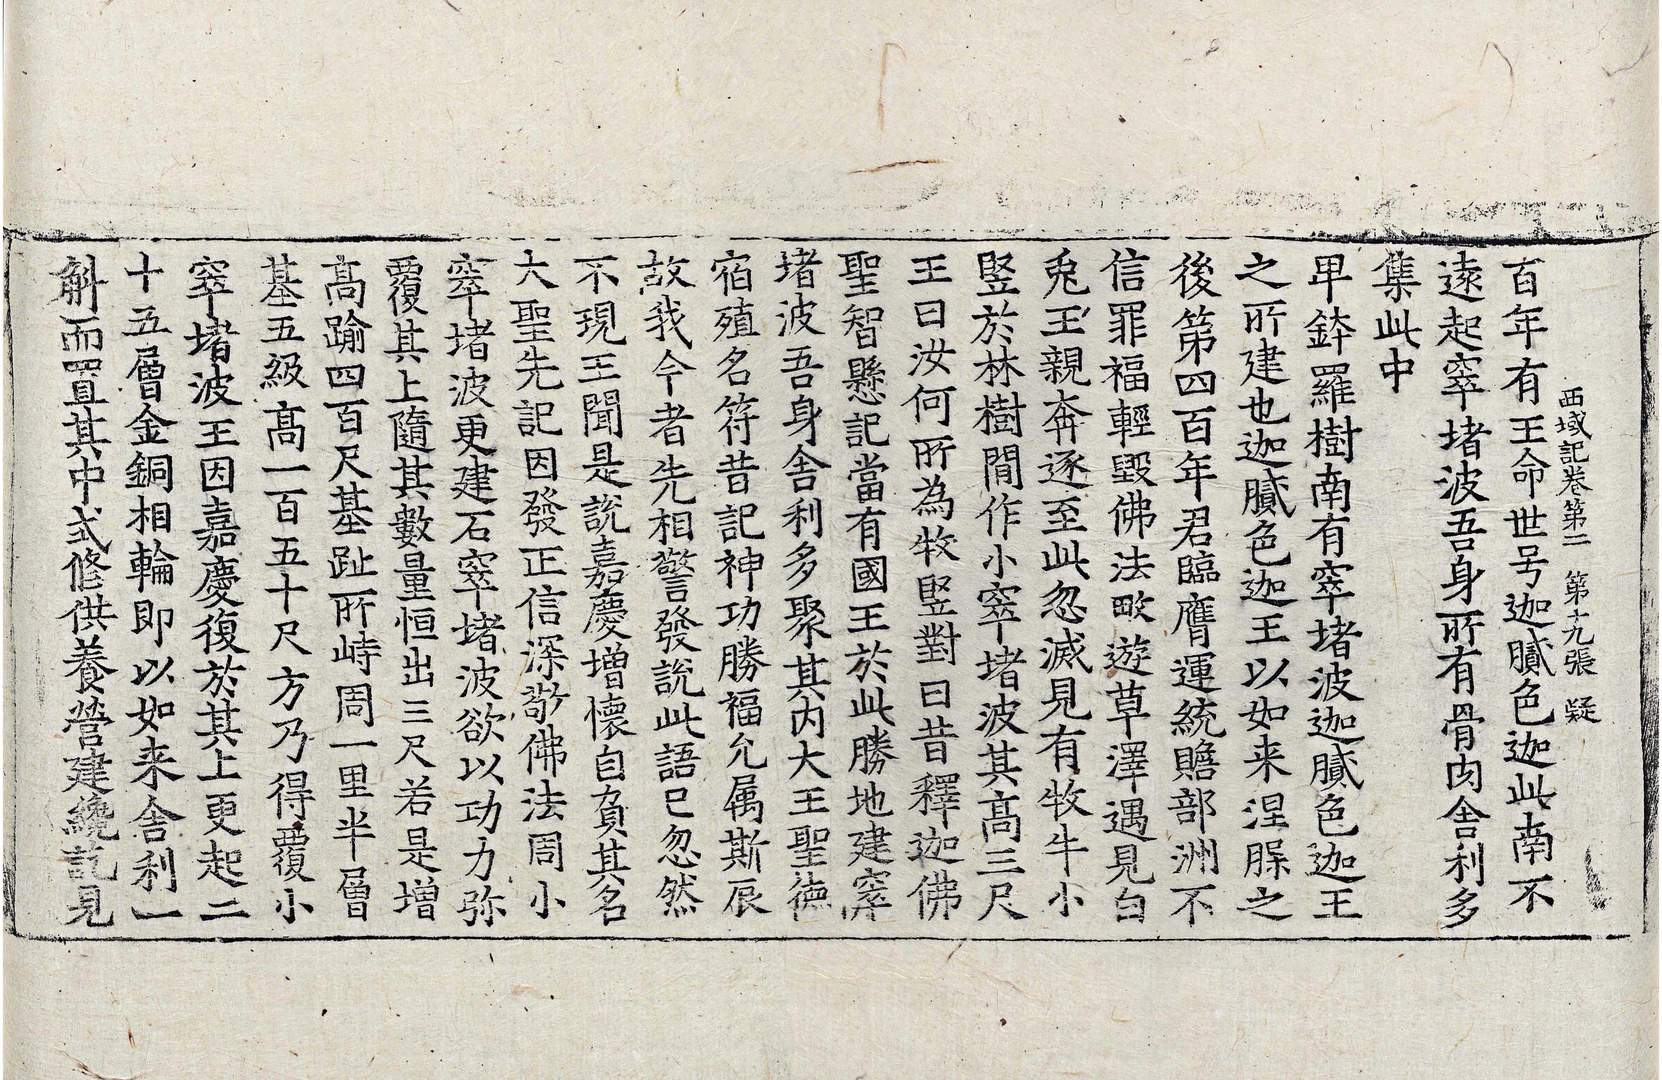 西域記卷第二 第十九張 疑
百年有王命世号迦膩色迦此南不
遠起窣堵波吾身所有骨肉舎利多
集此中
卑鉢羅樹南有窣堵波迦膩色迦王
之所建也迦膩色迦王以如来涅脲之
後第四百年君臨膺運統贍部洲不
信罪福輕毀佛法畋遊草澤遇見白
兎王親奔逐至此忽滅見有牧牛小
竪於林樹間作小窣堵波其髙三尺
王曰汝何所為牧竪對曰昔釋迦佛
聖智懸記當有國王於此勝地建窣
堵波吾身舎利多聚其内大王聖徳
宿殖名符昔記神功勝福允属斯辰
故我今者先相警發説此語已忽然
不現王聞是説嘉慶増懐自負其名
大聖先記因發正信深敬佛法周小
窣堵波更建石窣堵波欲以功力弥
覆其上隨其數量恒出三尺若是増
髙踰四百尺基趾所峙周一里半層
基五級髙一百五十尺方乃得覆小
窣堵波王因嘉慶復於其上更起二
十五層金銅相輪即以如来舎利一
斛而置其中式修供養營建纔訖見